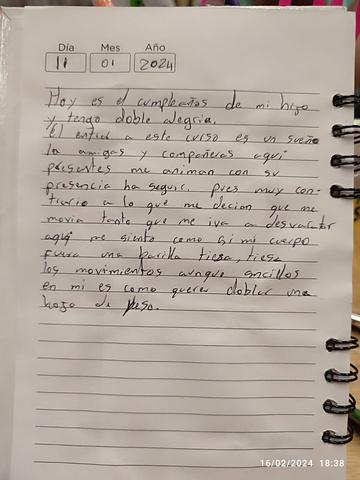 Día Mes Año
11 01 2024
Hoy es el cumpleaños de mi hijo
y tengo doble alegria.
él entrar a este curso es un sueño
la amigas y compañeras aqui
presentes me animan con su
presencia ha seguir. Pues muy con-
trario a lo que me decian que me
movia tanto que me iva a desvaratar
aqui me siento como si mi cuerpo
fuera una barilla tiesa, tiesa
los movimientos aunque sncillos
en mi es como querer doblar una
hoja de
16/02/2024 18:38